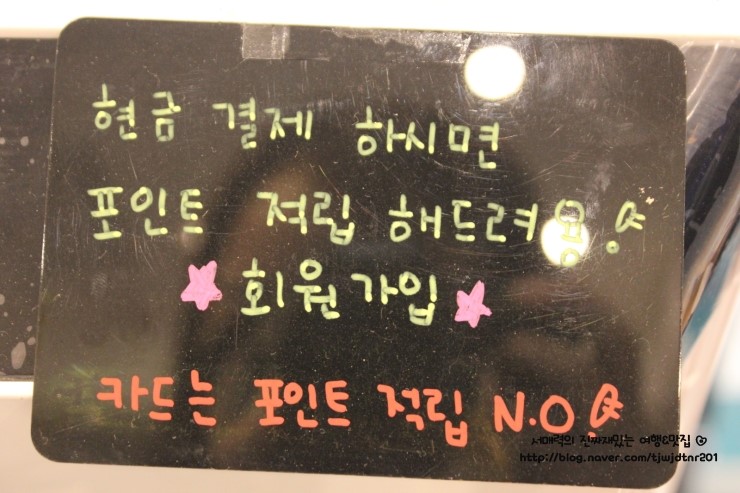 현금 결제 하시면
포인트 적립 해드려용!
회원가입
카드는 포인트 적립 N.O!
서매력의 진짜재있는 여행&맛집
http://blog.naver.com/tjwjdtnr201